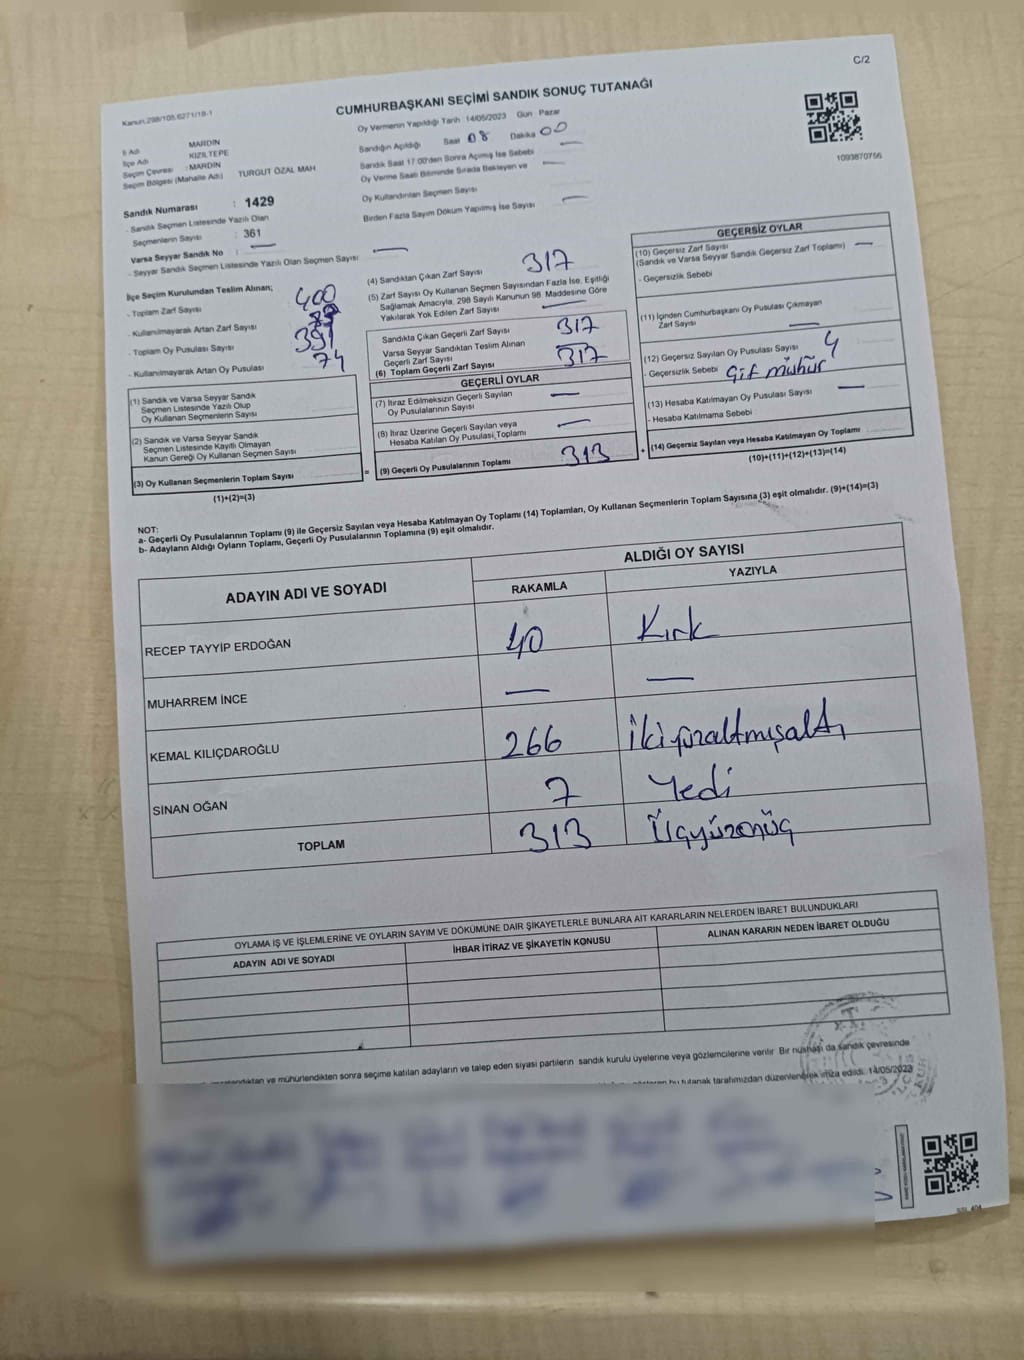 C/2
Kanun.298/105.6271/18-1
CUMHURBAŞKANI SEÇİMİ SANDIK SONUÇ TUTANAĞI
Oy Vermenin Yapıldığı Tarih 14/05/2023 Gün Pazar
İl Adı MARDİN
İlçe Adı KIZILTEPE
Seçim Çevresi : MARDİN
Seçim Bölgesi (Mahalle Adı) TURGUT ÖZAL MAH
Sandık Numarası : 1429
- Sandık Seçmen Listesinde Yazılı Olan
Seçmenlerin Sayısı : 361
Varsa Seyyar Sandık No : —
- Seyyar Sandık Seçmen Listesinde Yazılı Olan Seçmen Sayısı —
Sandığın Açıldığı Saat 08 Dakika 00
Sandık Saat 17:00'den Sonra Açımış İse Sebebi —
Oy Verme Saati Bitiminde Sırada Bekleyen ve —
Oy Kullandırılan Seçmen Sayısı
Birden Fazla Sayım Döküm Yapılmış İse Sayısı —
1093870756
İlçe Seçim Kurulundan Teslim Alınan;
- Toplam Zarf Sayısı 400
- Kullanılmayarak Artan Zarf Sayısı
- Toplam Oy Pusulası Sayısı 391
- Kullanılmayarak Artan Oy Pusulası 74
(1) Sandık ve Varsa Seyyar Sandık
Seçmen Listesinde Yazılı Olup
Oy Kullanan Seçmenlerin Sayısı
(2) Sandık ve Varsa Seyyar Sandık
Seçmen Listesinde Kayıtlı Olmayan
Kanun Gereği Oy Kullanan Seçmen Sayısı
(3) Oy Kullanan Seçmenlerin Toplam Sayısı
(1)+(2)=(3)
(4) Sandıktan Çıkan Zarf Sayısı 317
(5) Zarf Sayısı Oy Kullanan Seçmen Sayısından Fazla İse, Eşitliği
Sağlamak Amacıyla, 298 Sayılı Kanunun 98. Maddesine Göre
Yakılarak Yok Edilen Zarf Sayısı —
Sandıkta Çıkan Geçerli Zarf Sayısı 317
Varsa Seyyar Sandıktan Teslim Alınan
Geçerli Zarf Sayısı —
(6) Toplam Geçerli Zarf Sayısı 317
GEÇERLİ OYLAR
(7) İtiraz Edilmeksizin Geçerli Sayılan
Oy Pusulalarının Sayısı —
(8) İtiraz Üzerine Geçerli Sayılan veya
Hesaba Katılan Oy Pusulası Toplamı —
= (9) Geçerli Oy Pusulalarının Toplamı 313 +
GEÇERSİZ OYLAR
(10) Geçersiz Zarf Sayısı
(Sandık ve Varsa Seyyar Sandık Geçersiz Zarf Toplamı) —
- Geçersizlik Sebebi
(11) İçinden Cumhurbaşkanı Oy Pusulası Çıkmayan
Zarf Sayısı —
(12) Geçersiz Sayılan Oy Pusulası Sayısı 4
- Geçersizlik Sebebi Çift mühür
(13) Hesaba Katılmayan Oy Pusulası Sayısı —
- Hesaba Katılmama Sebebi
(14) Geçersiz Sayılan veya Hesaba Katılmayan Oy Toplamı
(10)+(11)+(12)+(13)=(14)
NOT:
a- Geçerli Oy Pusulalarının Toplamı (9) ile Geçersiz Sayılan veya Hesaba Katılmayan Oy Toplamı (14) Toplamları, Oy Kullanan Seçmenlerin Toplam Sayısına (3) eşit olmalıdır. (9)+(14)=(3)
b- Adayların Aldığı Oyların Toplamı, Geçerli Oy Pusulalarının Toplamına (9) eşit olmalıdır.
ADAYIN ADI VE SOYADI
ALDIĞI OY SAYISI
RAKAMLA YAZIYLA
RECEP TAYYİP ERDOĞAN 40 Kırk
MUHARREM İNCE — —
KEMAL KILIÇDAROĞLU 266 ikiyüzaltmışaltı
SİNAN OĞAN 7 Yedi
TOPLAM 313 Üçyüzonüç
OYLAMA İŞ VE İŞLEMLERİNE VE OYLARIN SAYIM VE DÖKÜMÜNE DAİR ŞİKAYETLERLE BUNLARA AİT KARARLARIN NELERDEN İBARET BULUNDUKLARI
ADAYIN ADI VE SOYADI İHBAR İTİRAZ VE ŞİKAYETİN KONUSU ALINAN KARARIN NEDEN İBARET OLDUĞU
ve mühürlendikten sonra seçime katılan adayların ve talep eden siyasi partilerin sandık kurulu üyelerine veya gözlemcilerine verilir Bir nüshası da sandık çevresinde
bu tutanak tarafımızdan düzenlenerek imza edildi. 14/05/2023